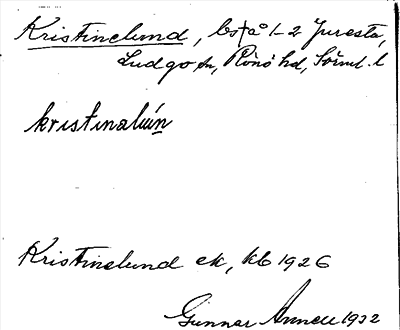 Kristinelund, bst å 1–2 Juresta,
Ludgo sn, Rönö hd, Sörml. l
kristinalún
Kristinelund ek, kb 1926
Gunnar Annell 1932